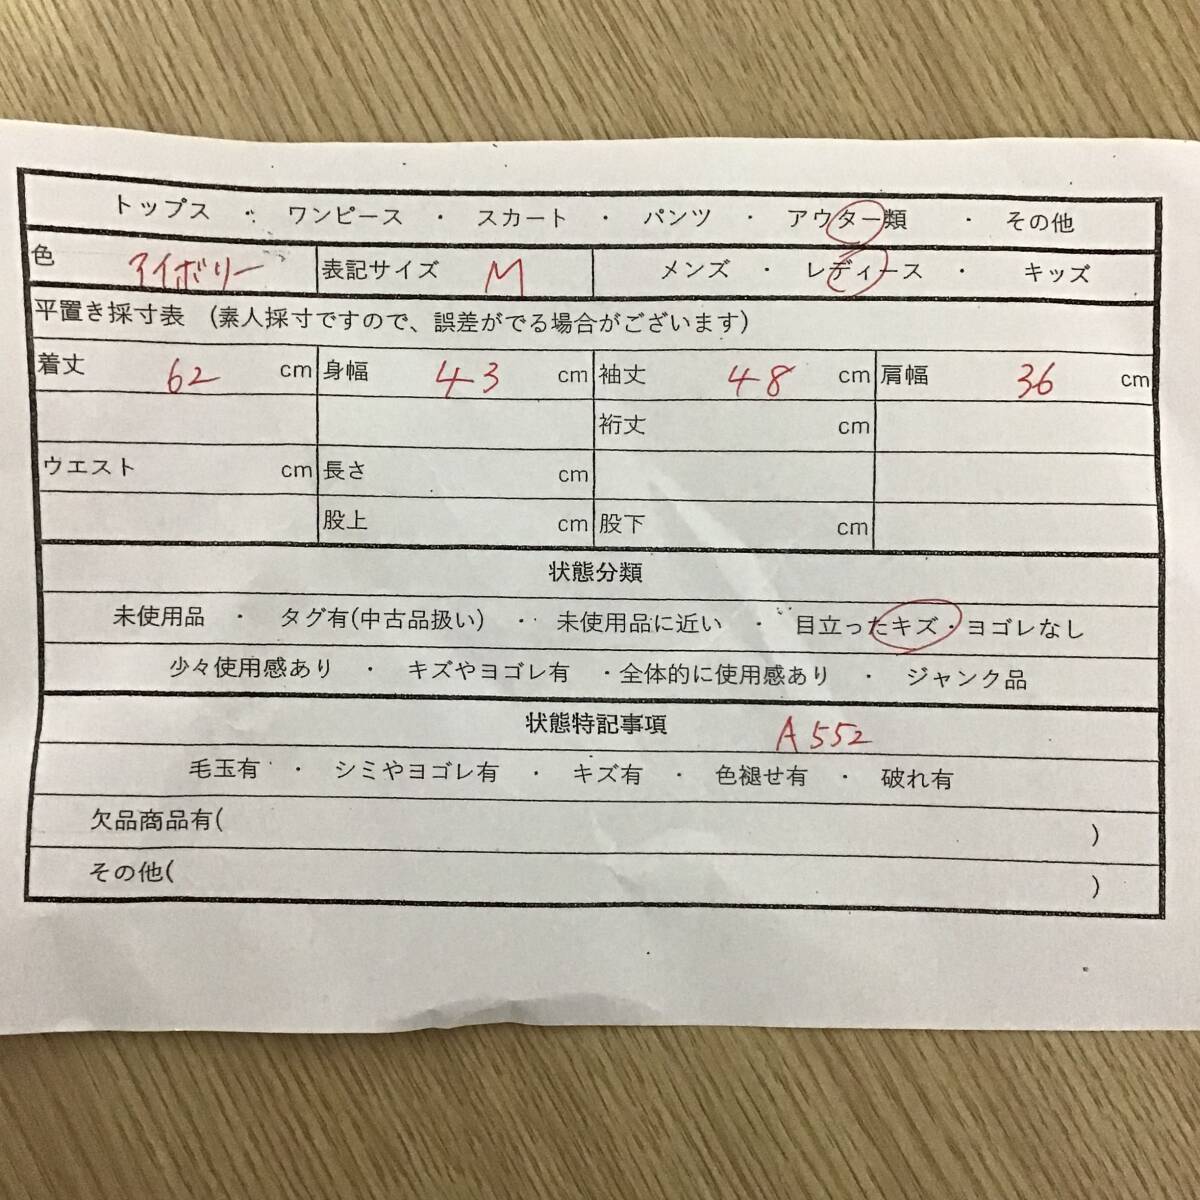 トップス ・ ワンピース ・ スカート ・ パンツ ・ アウター類 ・ その他
色 アイボリー 表記サイズ M メンズ ・ レディース ・ キッズ
平置き採寸表 (素人採寸ですので、誤差がでる場合がございます)
着丈 62 cm 身幅 43 cm 袖丈 48 cm 肩幅 36 cm
裄丈 cm
ウエスト cm 長さ cm
股上 cm 股下 cm
状態分類
未使用品 ・ タグ有(中古品扱い) ・ 未使用品に近い ・ 目立ったキズ・ヨゴレなし
少々使用感あり ・ キズやヨゴレ有 ・全体的に使用感あり ・ ジャンク品
状態特記事項 A552
毛玉有 ・ シミやヨゴレ有 ・ キズ有 ・ 色褪せ有 ・ 破れ有
欠品商品有( )
その他( )